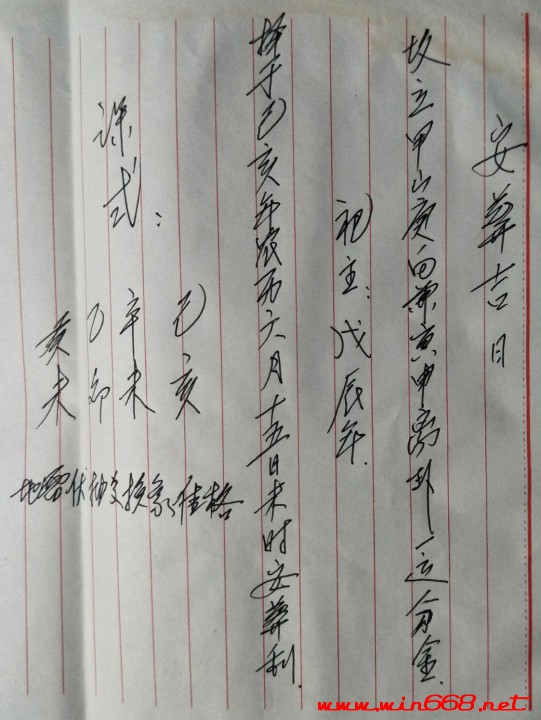 安葬吉日
坟立甲山庚向兼寅申离卦一运分金.
祀主：戊辰年.
择于己亥年农历六月十五日未时安葬利.
课式：
己亥
辛未
乙卯
癸未
地 伏 交换象佳格
www.win668.net